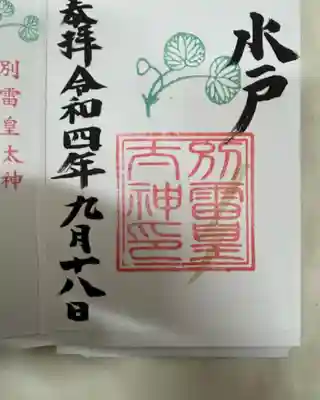 水戸
別雷皇
太神印
奉拝 令和四年九月十八日
別雷皇太神